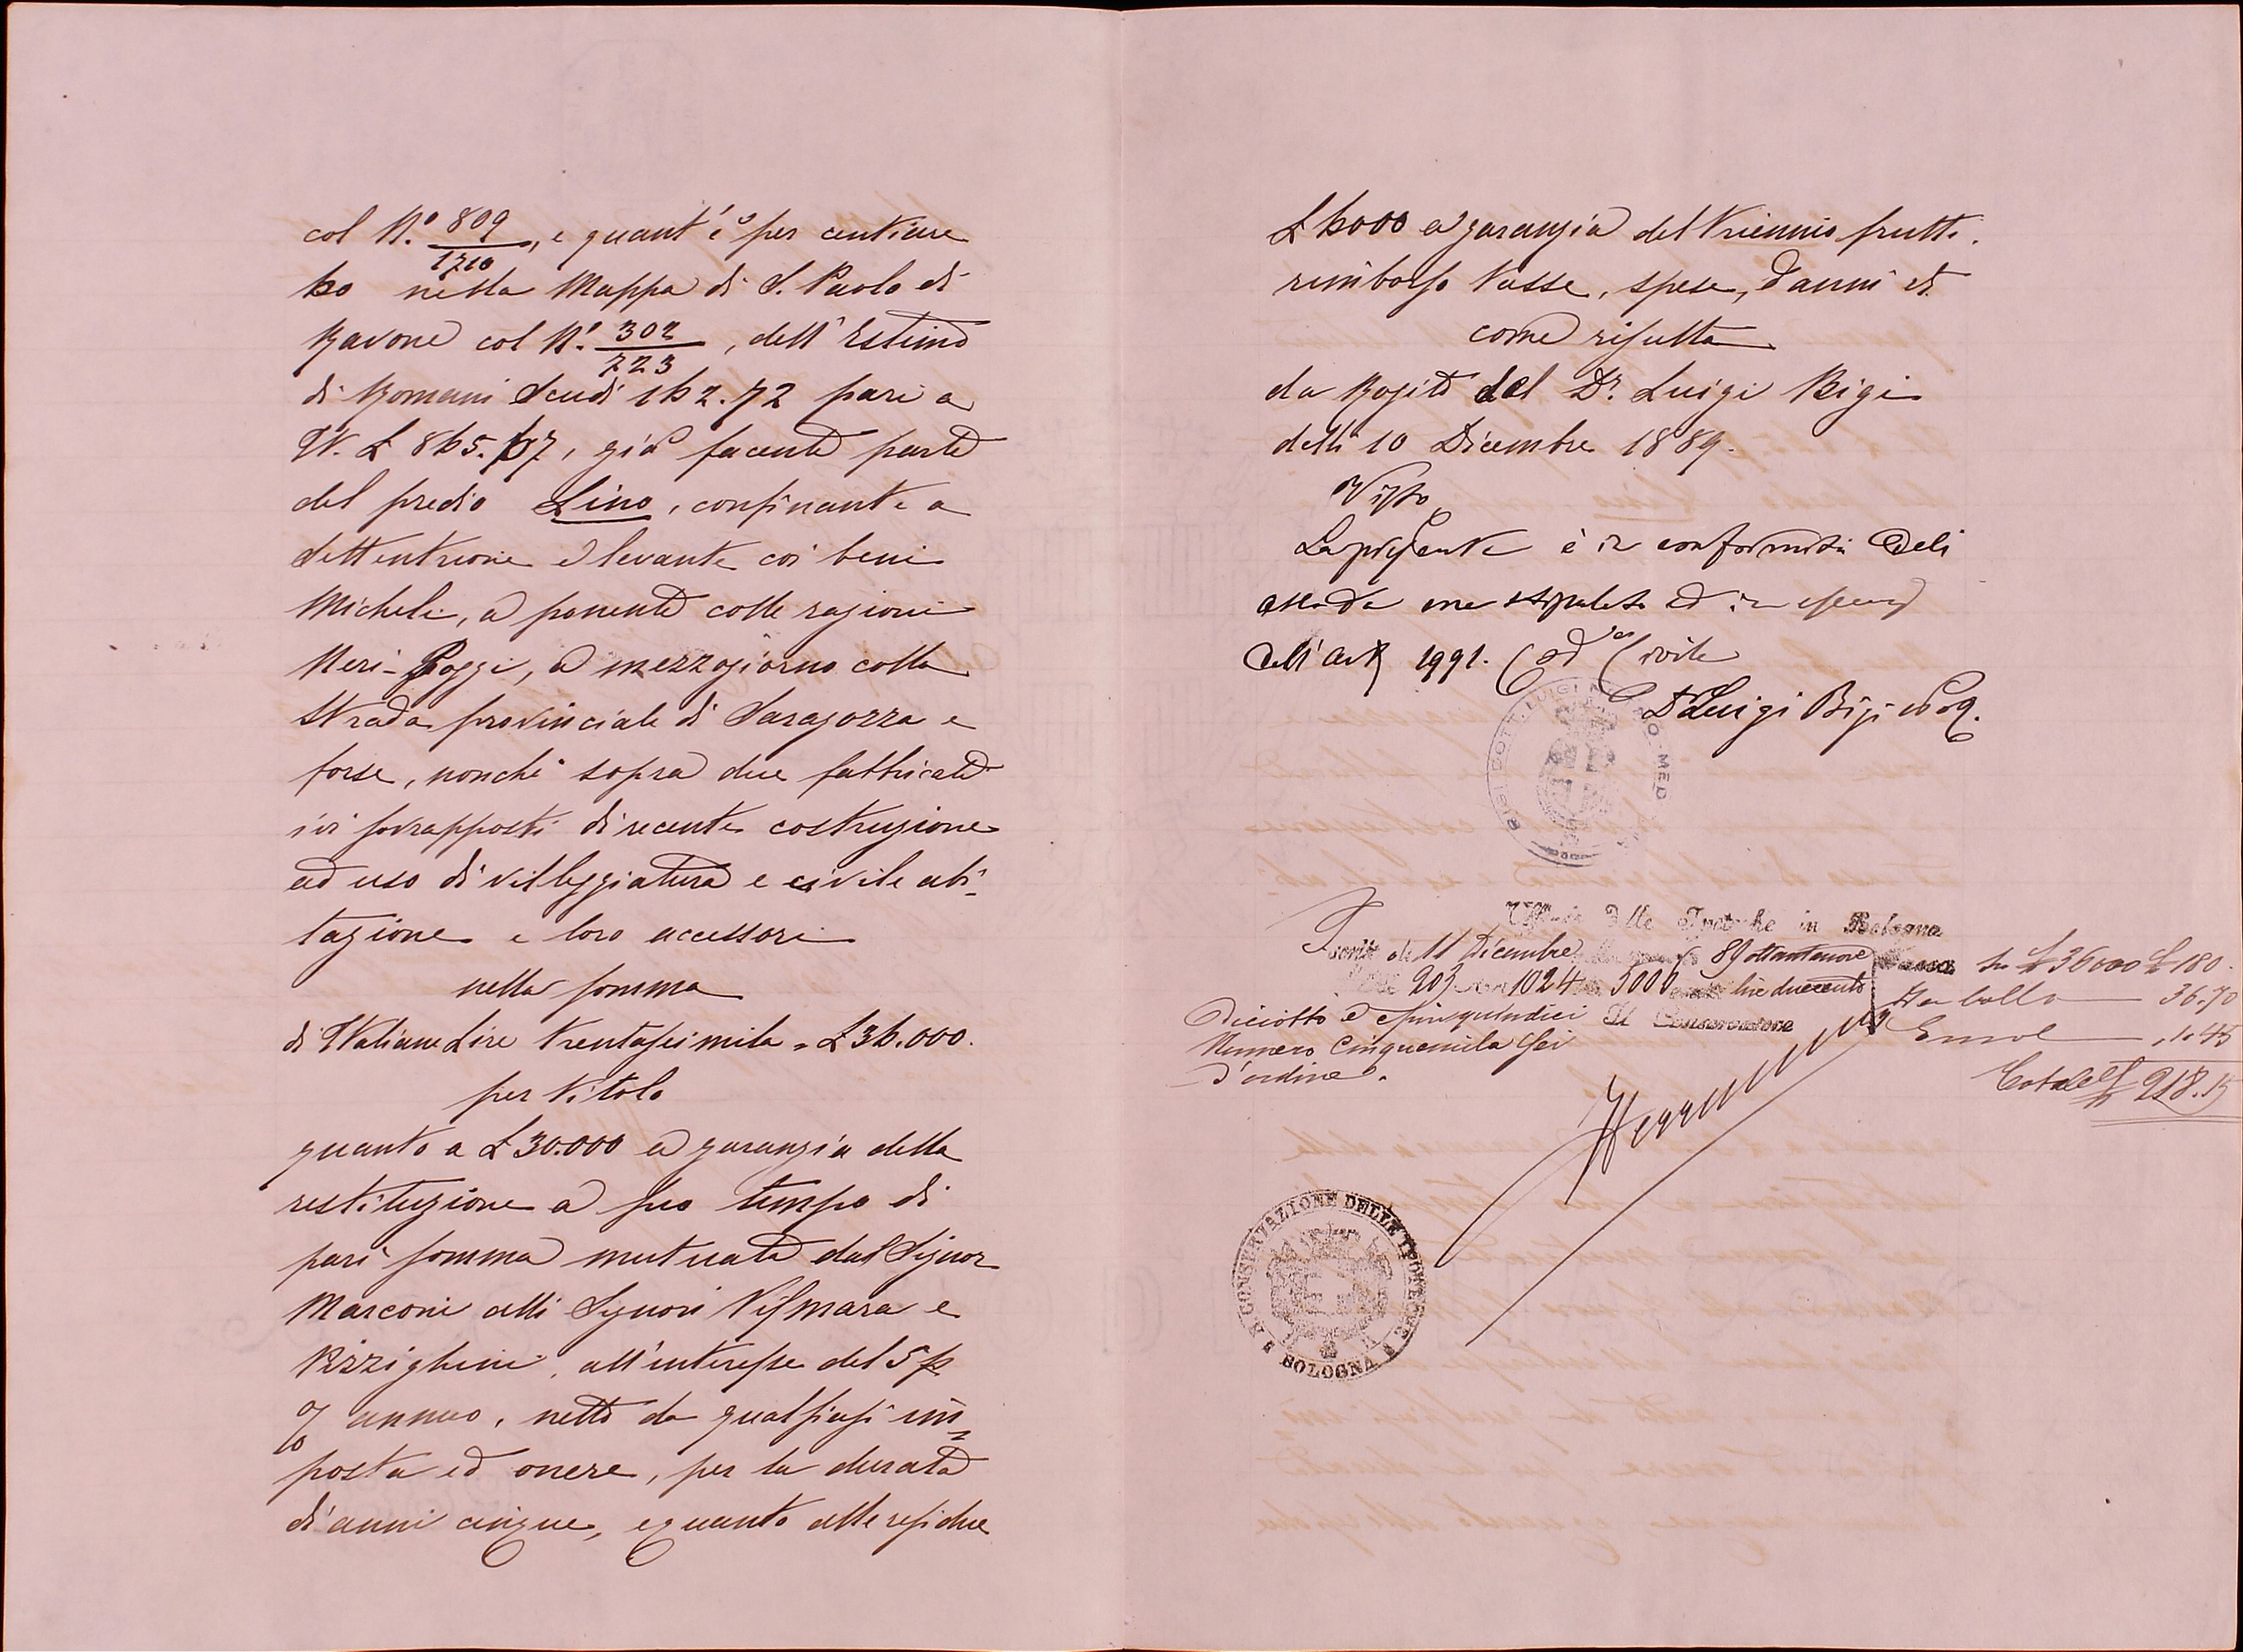 col N.º 809/1710, e quant'è per centiare
60 nella Mappa di S. Paolo di
Ravone col N.º 302/723, dell'Estimo
di Romani Scudi 162.72 pari a
It. £ 865.67, già facente parte
del predio Lino, confinante a
Settentrione e levante coi beni
Micheli, a ponente colle ragioni
Neri-Poggi, a mezzogiorno colla
Strada provinciale di Saragozza e
forse, nonchè sopra due fabbricati
ivi sovrapposti di recente costruzione
ad uso di villeggiatura e civile abi-
tazione e loro accessori
nella somma
di Italiane Lire trentaseimila = £ 36.000.
per titolo
quanto a £ 30.000 a garanzia della
restituzione a suo tempo di
pari somma mutuata dal Signor
Marconi alli Signori Vismara e
Rizzighini, all'interesse del 5 p
% annuo, netto da qualsiasi im=
posta ed onere, per la durata
di anni cinque, e quanto alle residue
£ 6000 a garanzia del triennio frutti,
rimborso tasse, spese, danni et
come risulta
da Rogito del Dr. Luigi Bigi
delli 10 Dicembre 1889.
Visto
La presente è in conformità dell
me stipulato ed in
dell'art 1991. Cod Civile
Dr Luigi Bigi Not.
BIGI DOTT. LUIGI
Uffizio delle Ipoteche in Bologna
11 Dicembre 89 ottantanove
203 1024 5000 lire duecento
Diciotto e quindici Il Conservatore
Numero Cinquemila Sei
d'ordine.
Tassa su £ 36000 £ 180.
bollo 36.70
Emol 1.45
Totale £ 218.15
CONSERVAZIONE DELLE IPOTECHE
BOLOGNA